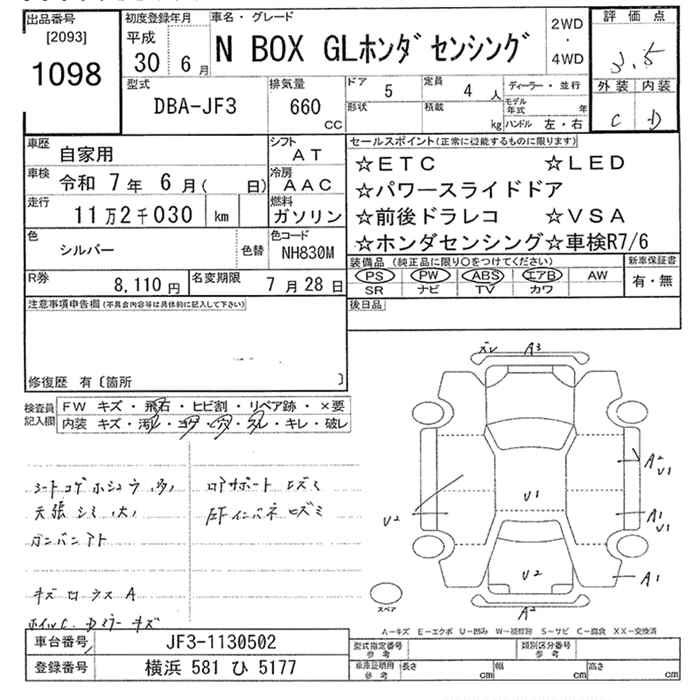 出品番号 初度登録年月 車名・グレード 評価点
[2093] 平成 2WD
1098 30 6月 N BOX GLホンダセンシング ・ 3.5
4WD
型式 排気量 ドア 5 定員 4人 ディーラー・並行 外装 内装
DBA-JF3 660 形状 積載 モデル年式 年 C D
CC kg ハンドル 左・右
車歴 自家用 シフト AT セールスポイント(正常に機能するものに限ります)
☆ETC ☆LED
車検 令和 7年 6月( 日) 冷房 AAC ☆パワースライドドア
走行 11万2千030 km 燃料 ガソリン ☆前後ドラレコ ☆VSA
色 シルバー 色替 色コード NH830M ☆ホンダセンシング☆車検R7/6
装備品(純正品に限り○をつけてください) 新車保証書
R券 8,110円 名変期限 7月28日 PS PW ABS エアB AW 有・無
SR ナビ TV カワ
注意事項申告欄(不具合内容等は具体的に記入して下さい) 後日品
修復歴 有〔箇所 〕
検査員記入欄 FW キズ・飛石・ヒビ割・リペア跡・×要
内装 キズ・汚レ・コゲ・穴・スレ・キレ・破レ
シートコゲホシュウ(多) ロアサポートヒズミ
天張シミ(大)
ガンバンアト
キズ
A3
A2
U1
U2
U1
A1
U1
U2
A1
A2
スペア
A-キズ E-エクボ U-凹み W-補修跡 S-サビ C-腐食 XX-交換済
車台番号 JF3-1130502 型式指定番号 参考 類別区分番号 参考
登録番号 横浜 581 ひ 5177 車庫証明用 参考 長さ cm 幅 cm 高さ cm